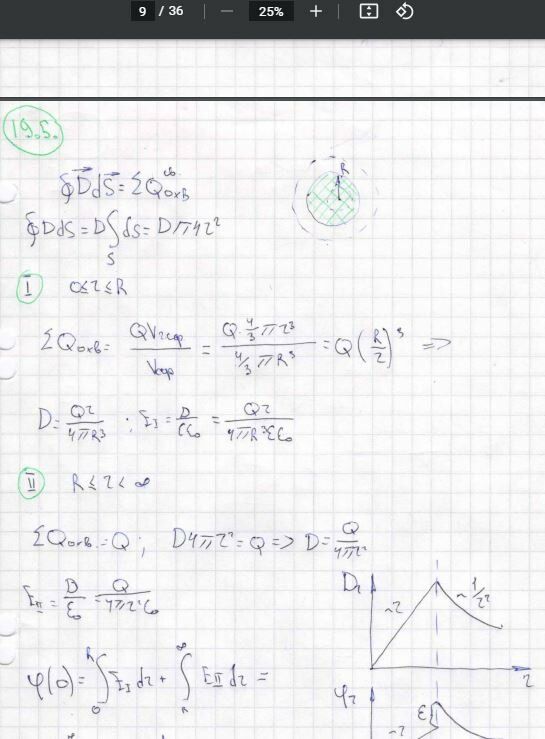 9 / 36 25%
19.5.
∮D⃗dS⃗ = ΣQ охв св.
R
∮DdS = D∫dS = Dπ4r²
S
I 0≤r≤R
ΣQохв = QVrсф/Vсф = Q·4/3πr³ / 4/3πR³ = Q(R/r)³ =>
D = Qr/4πR³ ; E_I = D/εε₀ = Qr/4πR³εε₀
II R≤r<∞
ΣQохв. = Q ; D4πr² = Q => D = Q/4πr²
D₁ ~r ~1/r²
E_II = D/ε₀ = Q/4πr²ε₀
r
φ(0) = ∫₀ᴿ E_I dr + ∫_R^∞ E_II dr =
ε{
~r